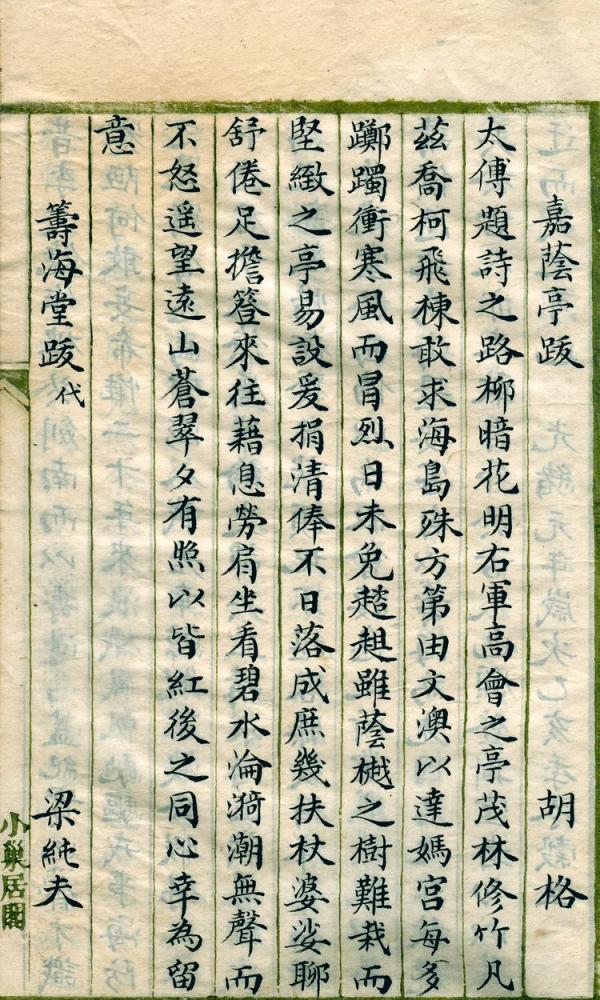 嘉蔭亭跋 胡格
太傅題詩之路柳暗花明右軍高會之亭茂林修竹凡
茲喬柯飛棟敢求海島殊方第由文澳以達媽宮每多
躑躅衝寒風而冒烈日未免趦趄雖蔭樾之樹難栽而
堅緻之亭易設爰捐清俸不日落成庶幾扶杖婆娑聊
舒倦足擔簦來往藉息勞肩坐看碧水淪漪潮無聲而
不怒遥望遠山蒼翠夕有照以皆紅後之同心幸為留
意
籌海堂跋代 梁純夫
小巢居閣